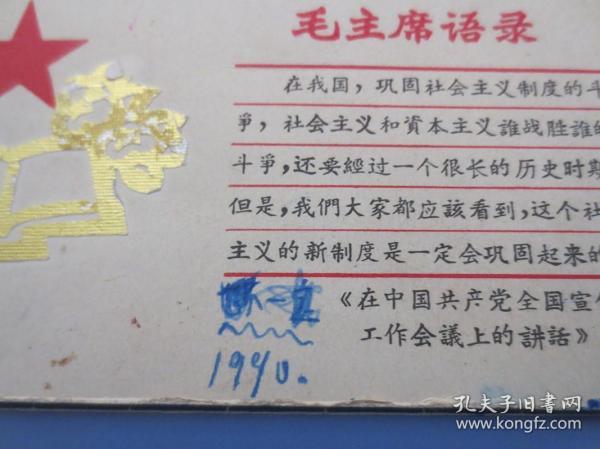 毛主席语录
在我国，巩固社会主义制度的斗
爭，社会主义和資本主义誰战胜誰的
斗爭，还要經过一个很长的历史时期
但是，我們大家都应該看到，这个社
主义的新制度是一定会巩固起来的
《在中国共产党全国宣传
工作会議上的讲話》
1970.
孔夫子旧书网
www.kongfz.com